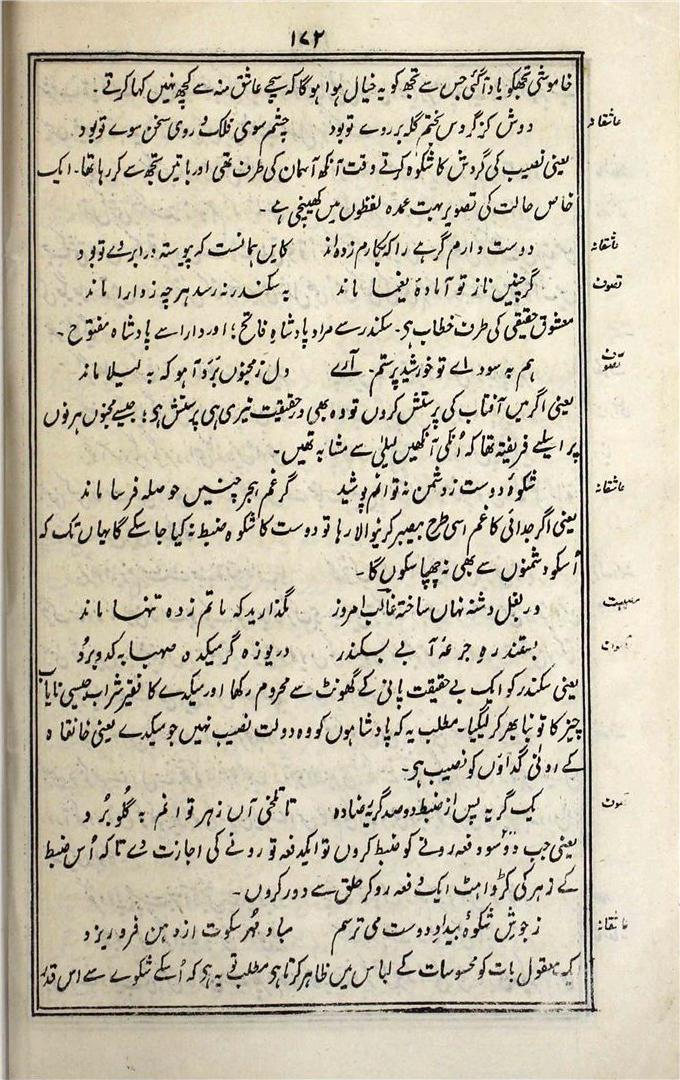 ۱۷۲
خاموشی تجھکو یاد آگئی جس سے تجھ کو یہ خیال ہوا ہوگا کہ سچے عاشق منہ سے کچھ نہیں کہا کرتے ۔
عاشقانہ
دوش کز گردش بختم گلہ بر روے تو بود چشم سوی فلک و روی سخن سوے تو بود
یعنی نصیب کی گردش کا شکوہ کرتے وقت آنکھ آسمان کی طرف تھی اور باتیں تجھ سے کر رہا تھا۔ ایک
خاص حالت کی تصویر بہت عمدہ لفظوں میں کھینچی ہے ۔
عاشقانہ
دوست دارم گرہے را کہ بکارم زدہ اند کایں ہمانست کہ پیوستہ در ابروے تو بود
تصوف
گر چنیں ناز تو آمادۂ یغما ماند بہ سکندر نرسد ہر چہ ز دارا ماند
معشوق حقیقی کی طرف خطاب ہی۔ سکندر سے مراد پادشاہ فاتح؛ اور دارا سے پادشاہ مفتوح ۔
تصوف
ہم بہ سوداے تو خورشید پرستم۔ آرے دل ز مجنوں بَرَد آہو کہ بہ لیلا ماند
یعنی اگر میں آفتاب کی پرستش کروں تو وہ بھی درحقیقت تیری ہی پرستش ہی؛ جیسے مجنوں ہرنوں
پر اسلیے فریفتہ تھا کہ اُنکی آنکھیں لیلیٰ سے مشابہ تھیں۔
عاشقانہ
شکوۂ دوست ز دشمن نہ توانم پوشید گر غم ہجر چنیں حوصلہ فرسا ماند
یعنی اگر جدائی کا غم اسی طرح بیصبر کرنیوالا رہا تو دوست کا شکوہ ضبط نہ کیا جا سکے گا یہاں تک کہ
اُسکو دشمنوں سے بھی نہ چھپا سکوں گا۔
مصیبت
در بغل دشنہ نہاں ساختہ غالب امروز نگذارید کہ ماتم زدہ تنہا ماند
تصوف
سکندر دریوزہ گر میکدہ صہبا بہ کدو بُرد
یعنی سکندر کو ایک بے حقیقت پانی کے گھونٹ سے محروم رکھا اور میکدے کا فقیر شراب جیسی نایاب
چیز کا تونبا بھر کر لیگیا۔ مطلب یہ کہ پادشاہوں کو وہ دولت نصیب نہیں جو میکدے یعنی خانقاہ
کے ادنیٰ گداؤں کو نصیب ہی۔
تصوف
یک گریہ پس از ضبط دو صد گریہ رضا دہ تا تلخی آں زہر توانم بہ گلو بُرد
یعنی جب دو۲سو دفعہ رونے کو ضبط کروں تو ایکدفعہ تو رونے کی اجازت دے تاکہ اُس ضبط
کے زہر کی کڑواہٹ ایک دفعہ رو کر حلق سے دور کروں ۔
عاشقانہ
ز جوش شکوۂ بیداد دوست می ترسم مباد مُہر سکوت از دہن فرو ریزد
ایک معقول بات کو محسوسات کے لباس میں ظاہر کرتا ہی مطلب یہ ہی کہ اُسکے شکوے سے اس قدر